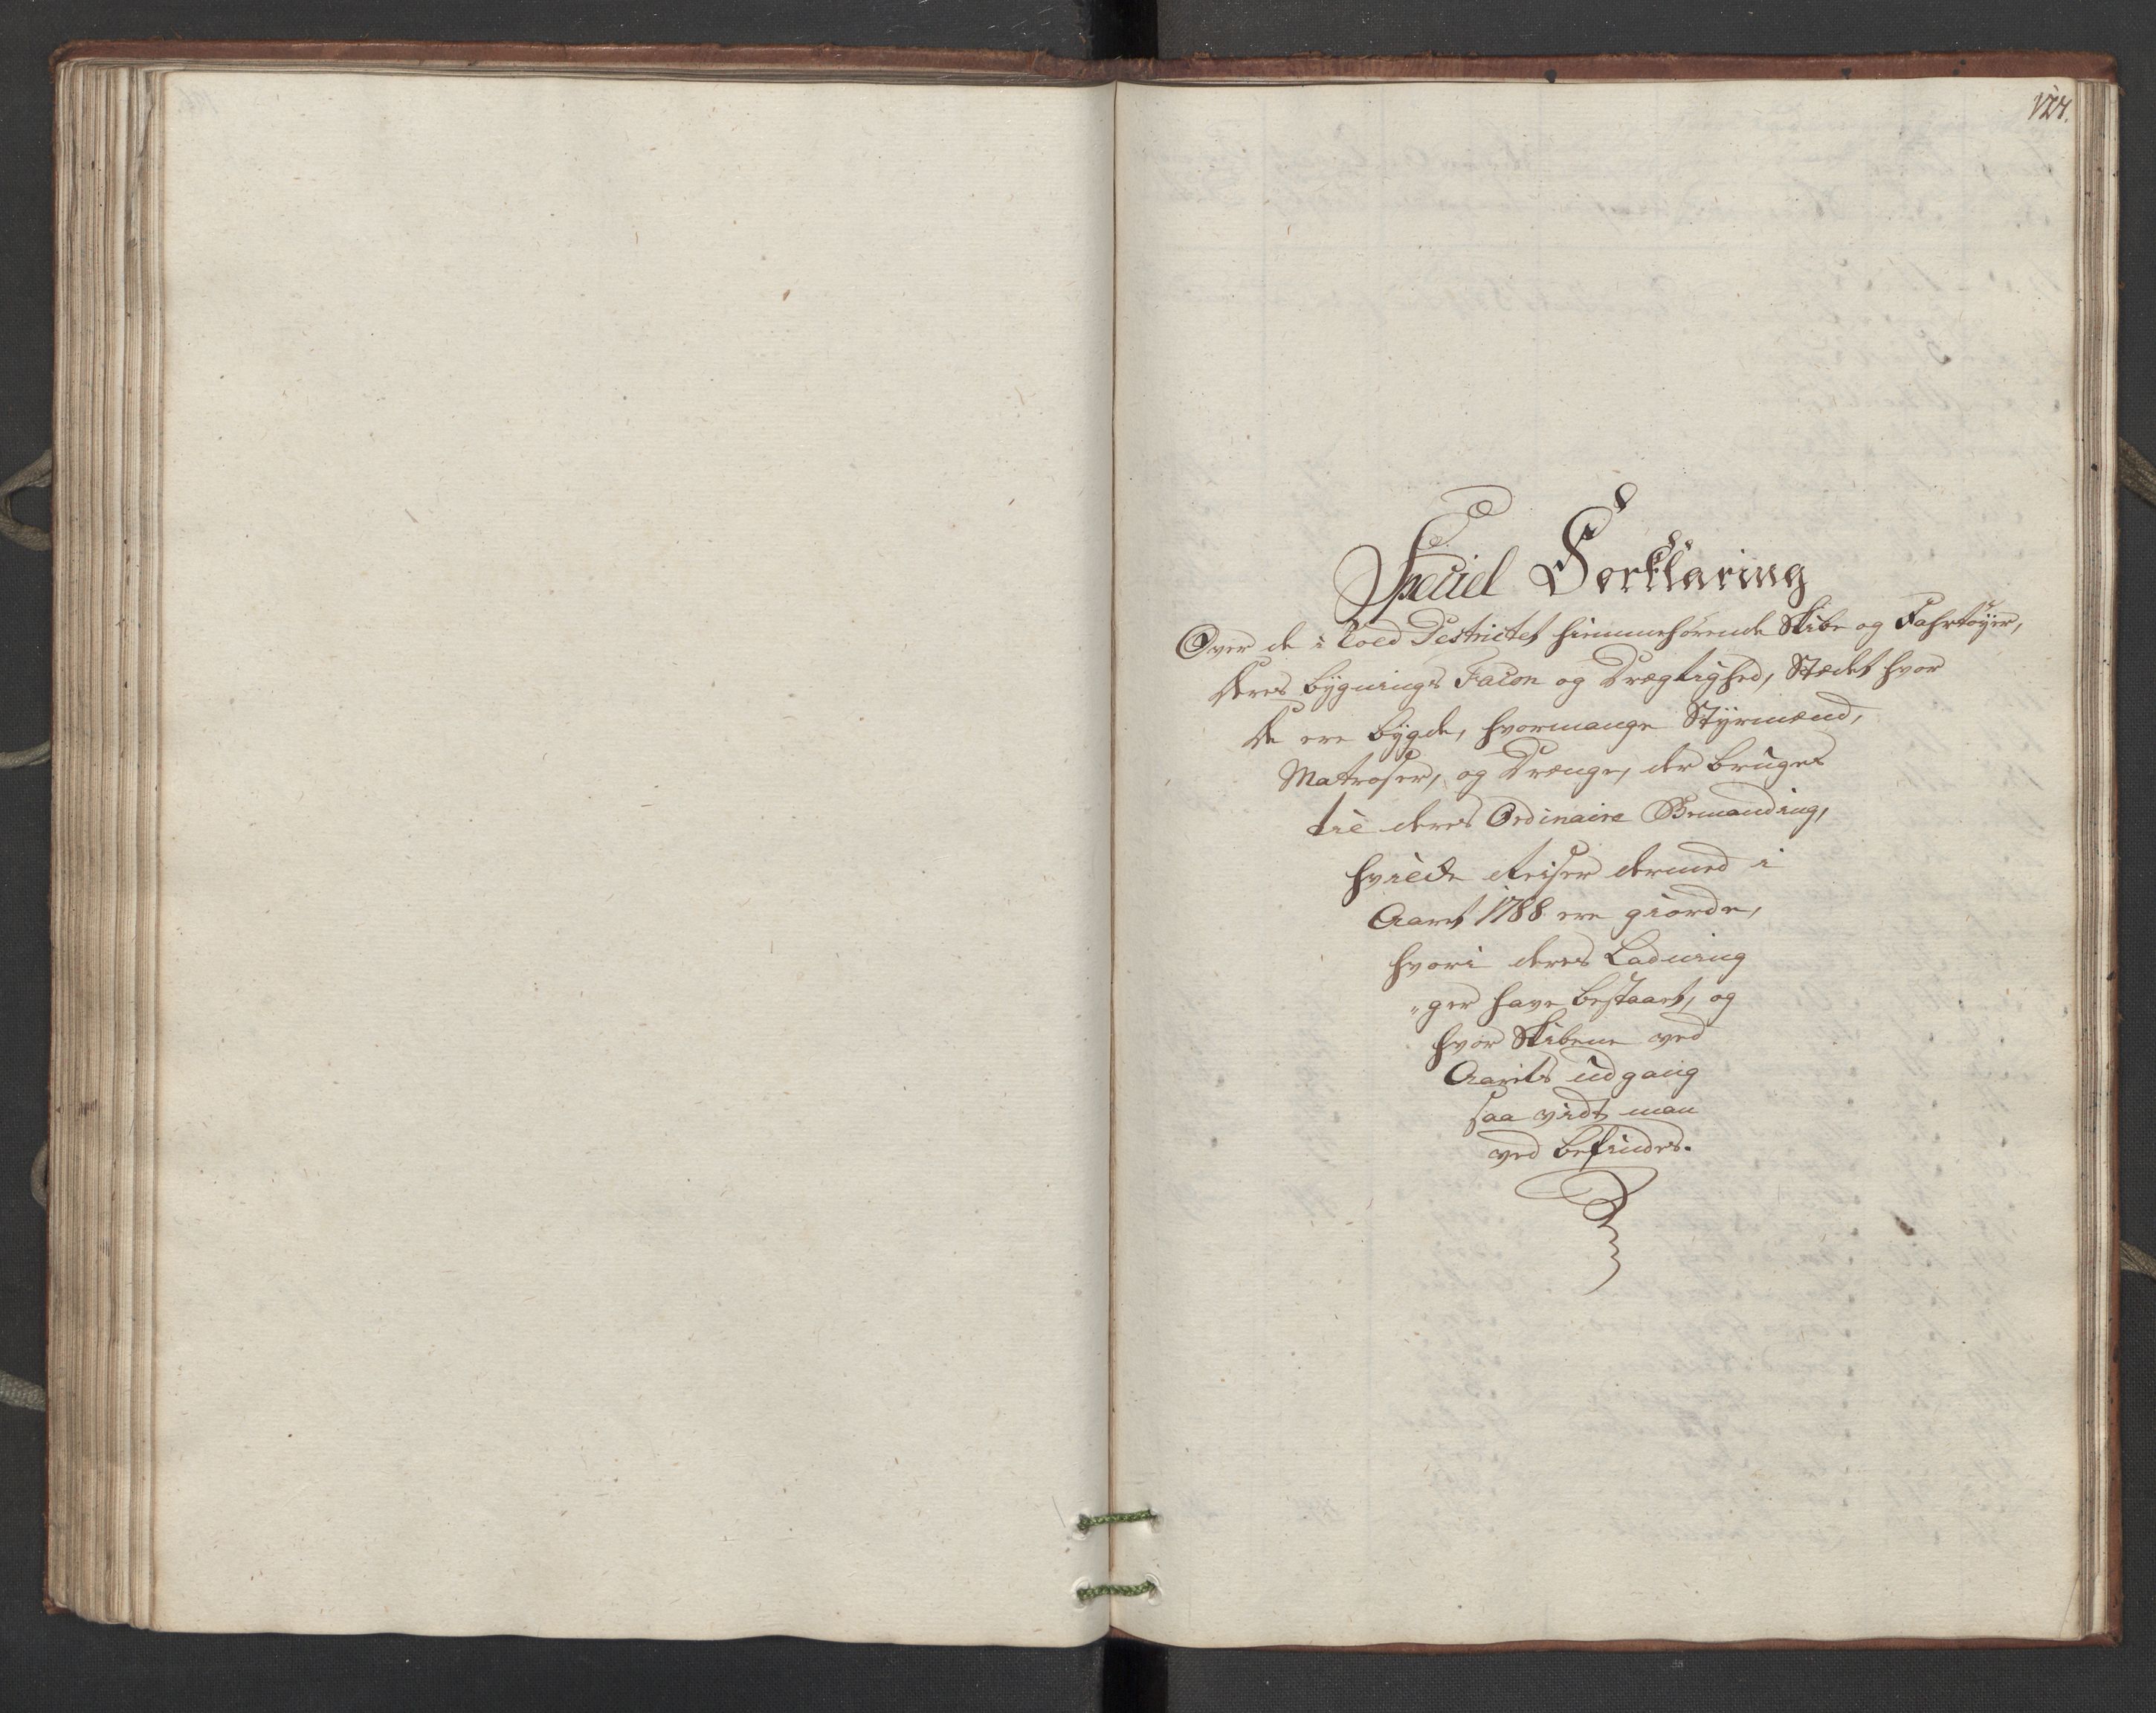 Speciel Forklaring
Over de i Told Destrictet hiemmehørende Skibe og Fahrtøyer,
deres bygnings Facon og Drægtighed, Stædet hvor
de ere bygde, hvormange Styrmænd,
Matroser, og Drænge, der bruges
til deres Ordinaire Bemanding,
hvilcke Reiser dermed i
Aaret 1788 ere giorde,
hvori deres Ladning
"ger have bestaaet, og
hvor Skibene ved
Aarets udgang
saa vidt man
ved befindes.